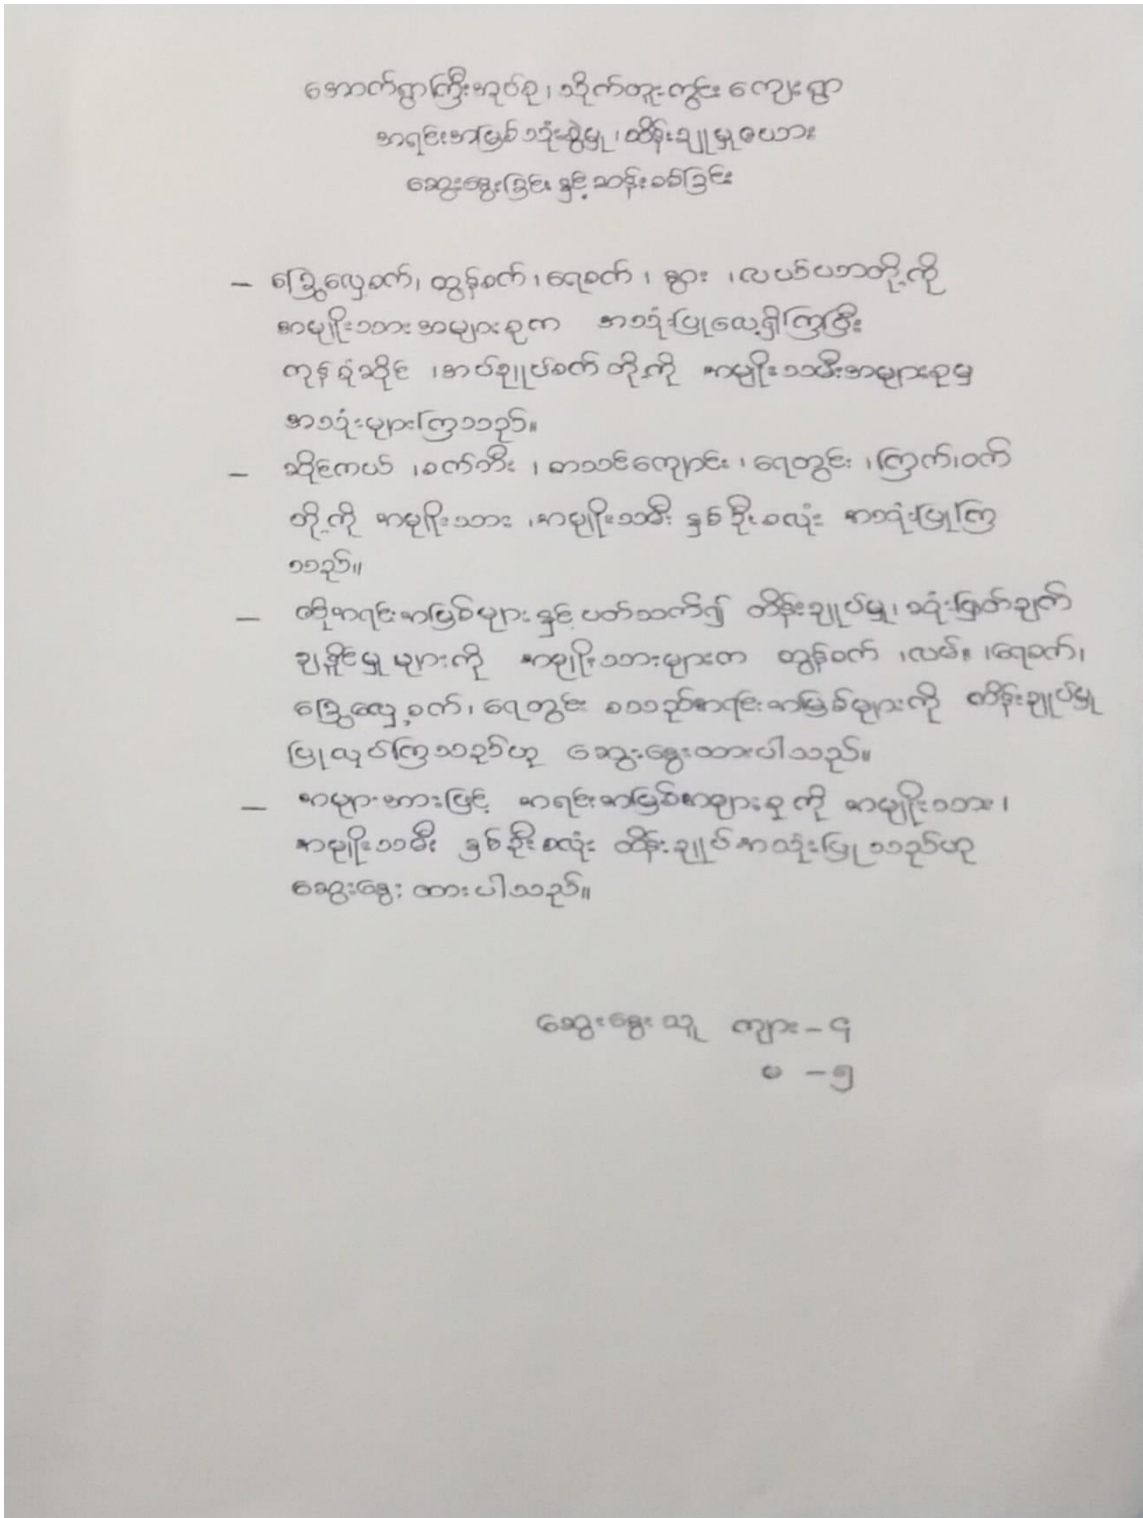 အောက်ရွာကြီးအုပ်စု၊ သိုက်တူးကွင်း ကျေးရွာ
အရင်းအမြစ်သုံးစွဲမှု၊ ထိန်းချုပ်မှုဇယား
ဆွေးနွေးခြင်း နှင့် ဆန်းစစ်ခြင်း
– ခြွေလှေ့စက်၊ ထွန်စက် ၊ ရေစက် ၊ နွား ၊ လယ်ယာတို့ကို
အမျိုးသားအများစုက အသုံးပြုလေ့ရှိကြပြီး
ကုန်စုံဆိုင် ၊ အပ်ချုပ်စက် တို့ကို အမျိုးသမီးအများစုမှ
အသုံးများကြသည်။
– ဆိုင်ကယ် ၊ စက်ဘီး ၊ စာသင်ကျောင်း ၊ ရေတွင်း ၊ ကြက်၊ ဝက်
တို့ကို အမျိုးသား ၊ အမျိုးသမီး နှစ်ဦးစလုံး အသုံးပြုကြ
သည်။
– ထိုအရင်းအမြစ်များ နှင့် ပတ်သက်၍ ထိန်းချုပ်မှု၊ ဆုံးဖြတ်ချက်
ချနိုင်မှု များကို အမျိုးသားများက ထွန်စက် ၊ လမ်း ၊ ရေစက်၊
ခြွေလှေ့စက်၊ ရေတွင်း စသည့်အရင်းအမြစ်များကို ထိန်းချုပ်မှု
ပြုလုပ်ကြသည်ဟု ဆွေးနွေးထားပါသည်။
– အများအားဖြင့် အရင်းအမြစ်အများစု ကို အမျိုးသား၊
အမျိုးသမီး နှစ်ဦးစလုံး ထိန်းချုပ်အသုံးပြုသည်ဟု
ဆွေးနွေးထားပါသည်။
ဆွေးနွေးသူ ကျား – ၄
မ – ၅